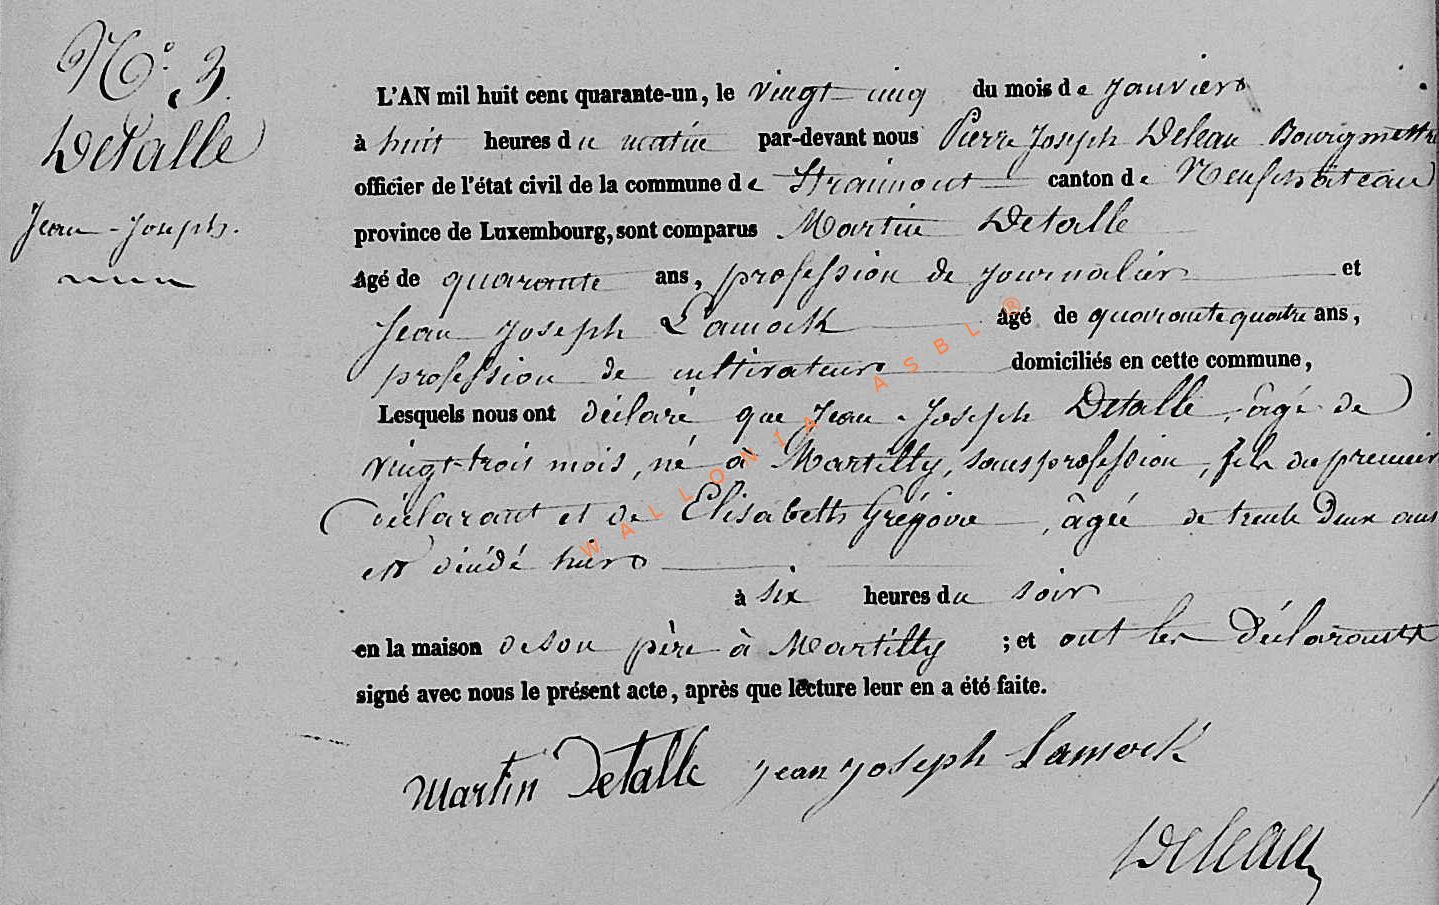 N.° 3.
Detalle
Jean-Joseph.
L'AN mil huit cent quarante-un, le vingt-cinq du mois de Janvier
à huit heures du matin par-devant nous Pierre Joseph Deleau Bourgmettre
officier de l'état civil de la commune de Straimont canton de Neufchâteau
province de Luxembourg, sont comparus Martin Detalle
âgé de quarante ans, profession de journalier et
Jean Joseph Lamock âgé de quarante quatre ans,
profession de cultivateur domiciliés en cette commune,
Lesquels nous ont déclaré que Jean-Joseph Detalle, âgé de
vingt-trois mois, né à Martilly, sans profession, fils du premier
déclarant et de Elisabeth Grégoire, âgée de trente deux ans
est décédé hier
à six heures du soir
en la maison de son père à Martilly ; et ont les déclarants
signé avec nous le présent acte, après que lecture leur en a été faite.
Martin Detalle Jean Joseph Lamock
Deleau
WALLONIA ASBL ®